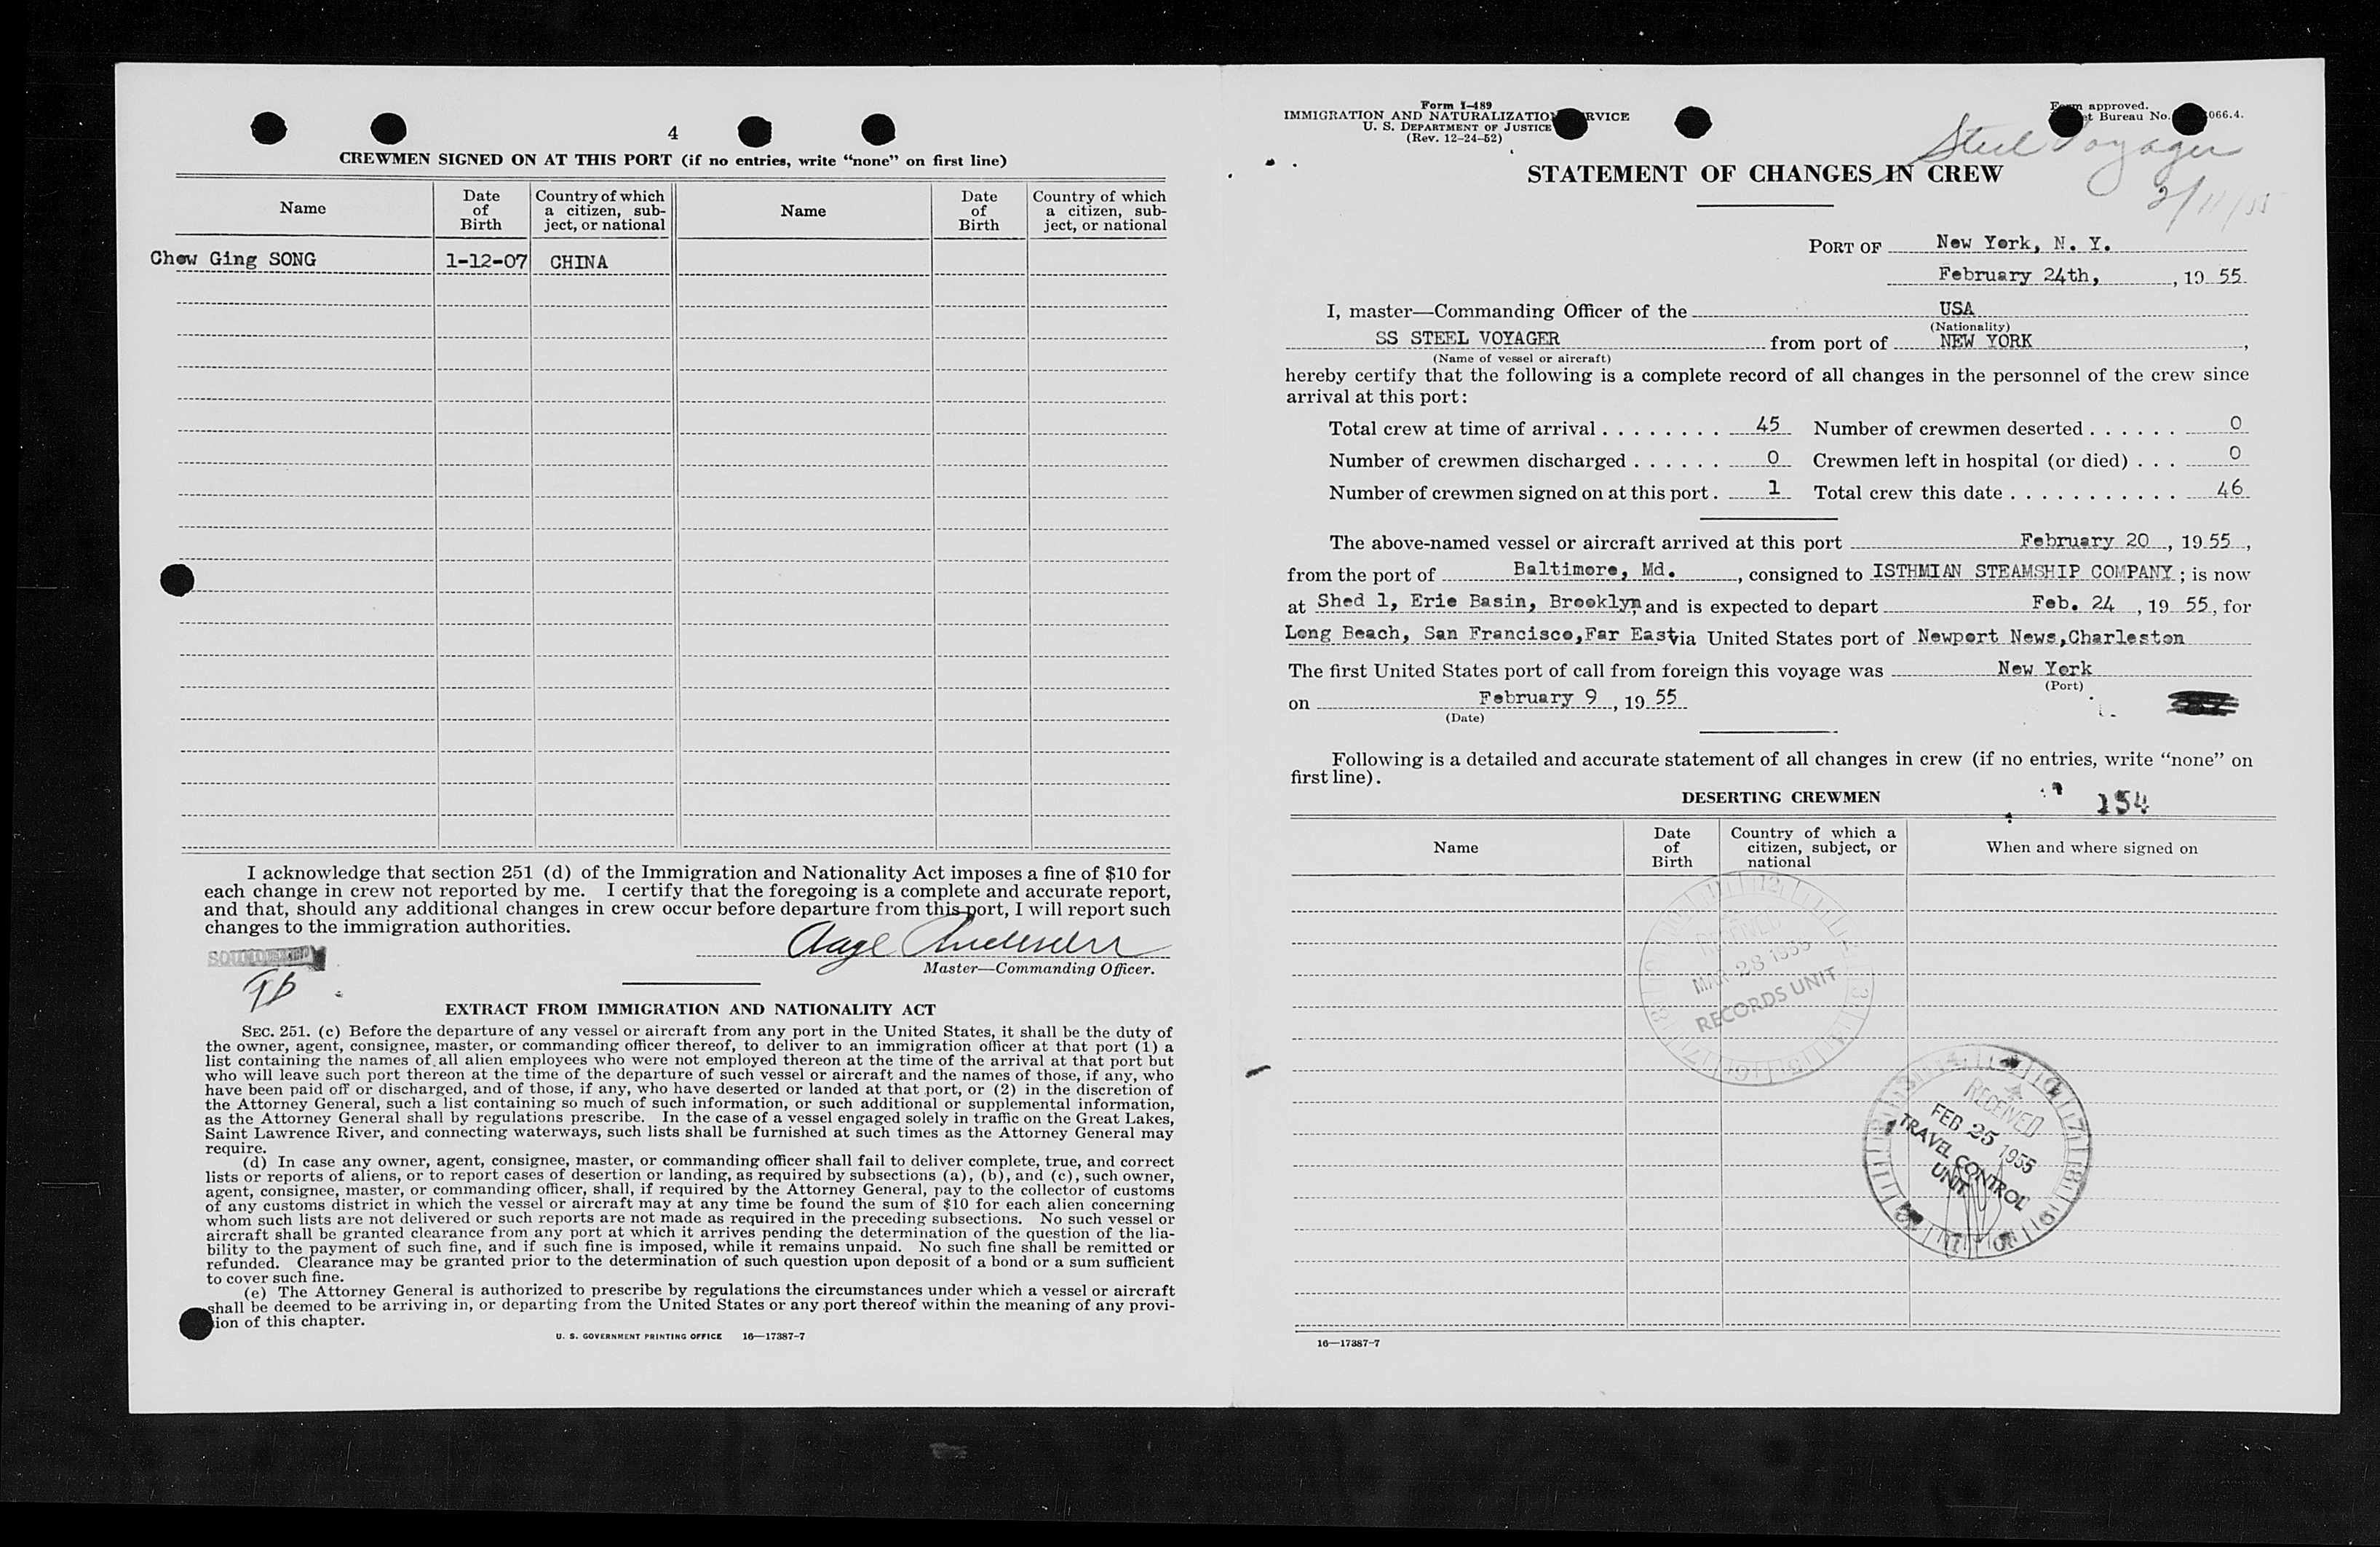 4
CREWMEN SIGNED ON AT THIS PORT (if no entries, write “none” on first line)
Name
Date of Birth
Country of which a citizen, sub-ject, or national
Name
Date of Birth
Country of which a citizen, sub-ject, or national
Chow Ging SONG 1-12-07 CHINA
I acknowledge that section 251 (d) of the Immigration and Nationality Act imposes a fine of $10 for
each change in crew not reported by me. I certify that the foregoing is a complete and accurate report,
and that, should any additional changes in crew occur before departure from this port, I will report such
changes to the immigration authorities.
Aage Andersen
Master—Commanding Officer.
EXTRACT FROM IMMIGRATION AND NATIONALITY ACT
SEC. 251. (c) Before the departure of any vessel or aircraft from any port in the United States, it shall be the duty of
the owner, agent, consignee, master, or commanding officer thereof, to deliver to an immigration officer at that port (1) a
list containing the names of all alien employees who were not employed thereon at the time of the arrival at that port but
who will leave such port thereon at the time of the departure of such vessel or aircraft and the names of those, if any, who
have been paid off or discharged, and of those, if any, who have deserted or landed at that port, or (2) in the discretion of
the Attorney General, such a list containing so much of such information, or such additional or supplemental information,
as the Attorney General shall by regulations prescribe. In the case of a vessel engaged solely in traffic on the Great Lakes,
Saint Lawrence River, and connecting waterways, such lists shall be furnished at such times as the Attorney General may
require.
(d) In case any owner, agent, consignee, master, or commanding officer shall fail to deliver complete, true, and correct
lists or reports of aliens, or to report cases of desertion or landing, as required by subsections (a), (b), and (c), such owner,
agent, consignee, master, or commanding officer, shall, if required by the Attorney General, pay to the collector of customs
of any customs district in which the vessel or aircraft may at any time be found the sum of $10 for each alien concerning
whom such lists are not delivered or such reports are not made as required in the preceding subsections. No such vessel or
aircraft shall be granted clearance from any port at which it arrives pending the determination of the question of the lia-
bility to the payment of such fine, and if such fine is imposed, while it remains unpaid. No such fine shall be remitted or
refunded. Clearance may be granted prior to the determination of such question upon deposit of a bond or a sum sufficient
to cover such fine.
(e) The Attorney General is authorized to prescribe by regulations the circumstances under which a vessel or aircraft
shall be deemed to be arriving in, or departing from the United States or any port thereof within the meaning of any provi-
sion of this chapter.
U. S. GOVERNMENT PRINTING OFFICE 16—17387-7
Form I-489
IMMIGRATION AND NATURALIZATION SERVICE
U. S. DEPARTMENT OF JUSTICE
(Rev. 12-24-52)
Form approved.
Bureau No. 066.4.
Steel Voyager
3/11/55
STATEMENT OF CHANGES IN CREW
PORT OF New York, N. Y.
February 24th, , 19 55
I, master—Commanding Officer of the USA
(Nationality)
SS STEEL VOYAGER from port of NEW YORK ,
(Name of vessel or aircraft)
hereby certify that the following is a complete record of all changes in the personnel of the crew since
arrival at this port:
Total crew at time of arrival . . . . . . . . 45 Number of crewmen deserted . . . . . . 0
Number of crewmen discharged . . . . . . 0 Crewmen left in hospital (or died) . . . 0
Number of crewmen signed on at this port . 1 Total crew this date . . . . . . . . . . . 46
The above-named vessel or aircraft arrived at this port February 20 , 19 55 ,
from the port of Baltimore, Md. , consigned to ISTHMIAN STEAMSHIP COMPANY ; is now
at Shed 1, Erie Basin, Brooklyn, and is expected to depart Feb. 24 , 19 55, for
Long Beach, San Francisco,Far East via United States port of Newport News,Charleston
The first United States port of call from foreign this voyage was New York
(Port)
on February 9 , 19 55
(Date)
Following is a detailed and accurate statement of all changes in crew (if no entries, write “none” on
first line).
DESERTING CREWMEN
154
Name
Date of Birth
Country of which a citizen, subject, or national
When and where signed on
RECEIVED
MAR 28 1955
RECORDS UNIT
RECEIVED
FEB 25 1955
TRAVEL CONTROL
UNIT
16—17387-7